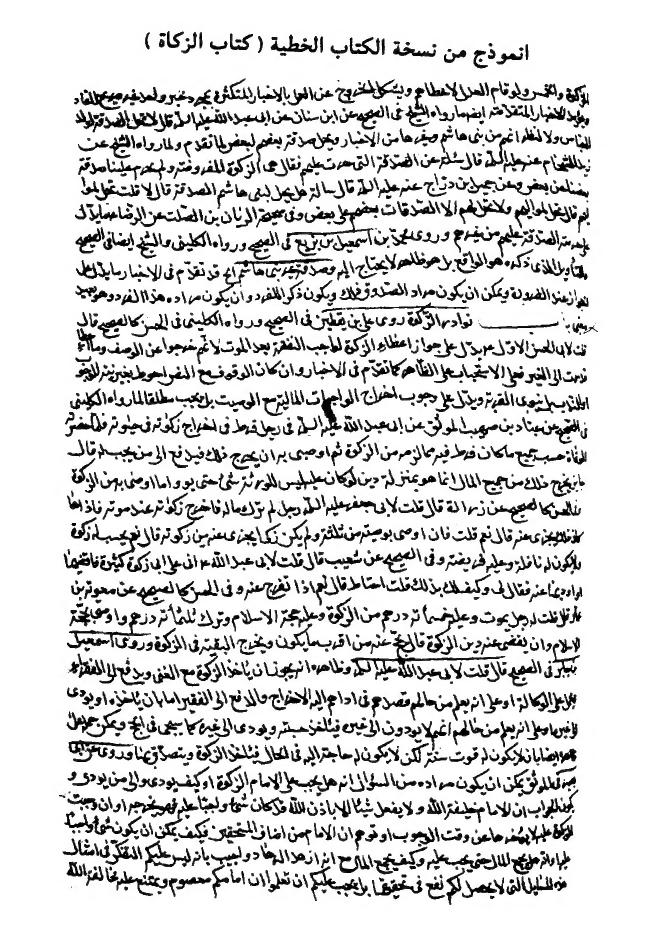 انموذج من نسخة الكتاب الخطية ( كتاب الزكاة )
الزكوة والخمس ولو قام العدل لاعطاهم ويشكل الخروج عن العمل بالاخبار المتكثرة بمجرد خبر
الاخبار المتقدمة ايضا ما رواه الشيخ فى الصحيح عن ابن سنان عن ابى عبد الله عليه السلام قال لا تحل الصدقة لولد
العباس ولا لنظرائهم من بنى هاشم وغيرها من الاخبار ويحل صدقة بعضهم لبعض لما تقدم ولما رواه الشيخ عن
زيد الشحام عنه عليه السلام قال سئلته عن الصدقة التى حرمت عليهم فقال هى الزكوة المفروضة ولم يحرم علينا صدقة
بعضنا من بعض وعن جميل بن دراج عنه عليه السلام قال سالته هل يحل لبنى هاشم الصدقة قال لا قلت تحل لمواليهم
قال تحل لمواليهم ولا تحل لهم الا الصدقات بعضهم على بعض وفى صحيحة الريان بن الصلت عن الرضا
الصدقة عليهم من غيرهم وروى محمد بن اسمعيل بن بزيع فى الصحيح ورواه الكلينى والشيخ ايضا فى الصحيح
الذى ذكره هو الواقع بل هو ظاهر لا يحتاج اليه وصدقة غير بنى هاشم الخ قد تقدم فى الاخبار ما يدل على
الجواز عند الضرورة ويمكن ان يكون مراد الصدوق ذلك ويكون ذكر المفرد وان يكون مراده هذا الفرد وهو بعيد
نوادر الزكوة روى على بن يقطين فى الصحيح ورواه الكلينى فى الحسن كالصحيح قال
قلت لابى الحسن الاول عليه يدل على جواز اعطاء الزكوة لواجب النفقة بعد الموت لانهم خرجوا عن الوصف وما
الى الغير فعلى الاستحباب على الظاهر كما تقدم فى الاخبار وان كان الوقوف مع النص احوط
بل ينوى القربة ويدل على وجوب اخراج الواجبات المالية مع الوصية بل يجب مطلقا لما رواه الكلينى
فى الصحيح عن عباد بن صهيب الموثق عن ابى عبد الله عليه السلام فى رجل فرط فى اخراج زكوته فى حيوته فلما حضرته
الوفاة حسب جميع ما كان فرط فيه مما لزمه من الزكوة ثم اوصى به ان يخرج ذلك فيدفع الى من يجب له قال
جايز يخرج ذلك من جميع المال انما هو بمنزلة دين لو كان عليه ليس للورثة شئ حتى يودوا ما اوصى به من الزكوة
الحسن كالصحيح عن زرارة قال قلت لابى جعفر عليه السلام رجل لم يزك ماله فاخرج زكوته عند موته فاداها
كان ذلك يجزى عنه قال نعم قلت فان اوصى بوصية من ثلثه ولم يكن زكى ايجزى عنه من زكوته قال نعم يحسب له زكوة
ولا يكون له نافلة وعليه فريضة وفى الصحيح عن شعيب قال قلت لابى عبد الله ع ان على ابى زكوة كثيرة فاقضيها
او اوديها عنه فقال لى وكيف لك بذلك قلت احتاط قال نعم اذا تفرج عنه وفى الحسن كالصحيح عن معوية بن
عمار قال قلت له رجل يموت وعليه خمسمأة درهم من الزكوة وعليه حجة الاسلام وترك ثلثمأة درهم واوصى بحجة
الاسلام وان يقضى عنه دين الزكوة قال يحج عنه من اقرب ما يكون ويخرج البقية فى الزكوة وروى اسمعيل
بن جابر فى الصحيح قال قلت لابى عبد الله عليه السلام وظاهره انه يجوز ان ياخذ الزكوة مع الغنى ويدفع الى الفقراء
على الوكالة او على انه يعلم من حالهم قصدهم فى اداهم اليه الاخراج والدفع الى الفقير اما بان ياخذه او يودى
او على انه يعلم من حالهم انهم لا يودون الى غيره فياخذ حسبة ويودى الى غيره كما سيجئ فى الحج ويمكن حمله
بان لا يكون له قوت سنة لكن لا يكون له حاجة اليه فى الحال فياخذ الزكوة ويتصدق بها وروى عن
الموثق يمكن ان يكون مراده من السؤال انه هل يجب على الامام الزكوة او كيف يودى والى من يودى و
يكون الجواب ان الامام خليفة الله ولا يفعل شيئا الا باذن الله فلو كان شئ واجبا عليه فهو يخرجه او ان وجبت
الزكوة عليه لا يؤخرها عن وقت الوجوب او توهم ان الامام من اصناف المستحقين فكيف يمكن ان يكون شئ واجبا
عليه او انه هل يجمع المال حتى يجب عليه وكيف يجمع المال مع انه ازهد الزهاد واجيب بانه ليس عليكم التفكر فى امثال
هذه المسايل التى لا يحصل لكم نفع فى تحقيقها بل يجب عليكم ان تعلموا ان امامكم معصوم ويمتنع عليه مخالفة الله